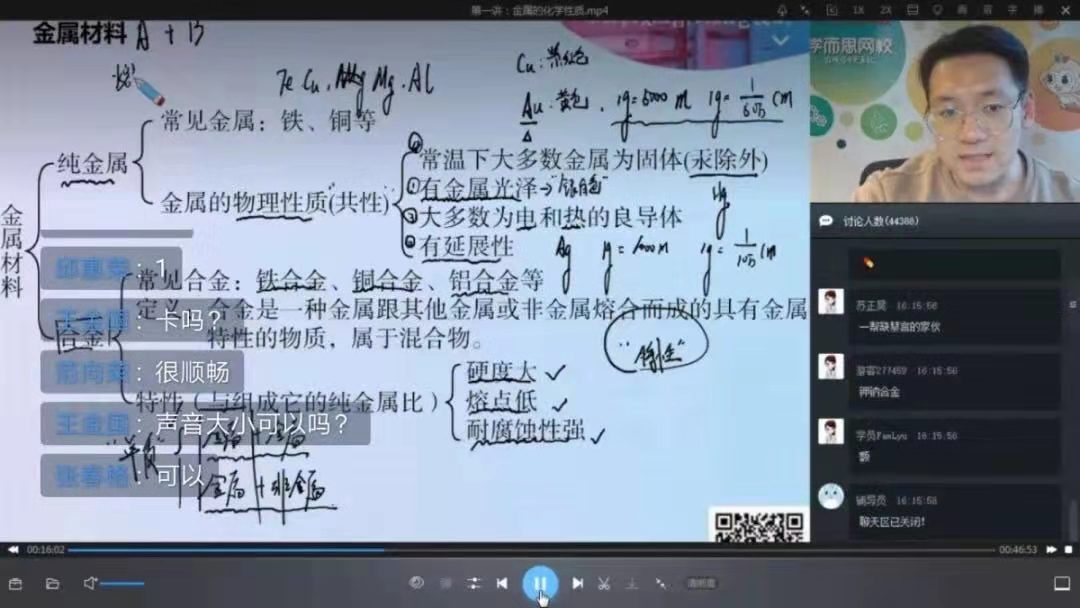 第一讲：金属的化学性质.mp4
1X 2X
金属材料 A + B
Cu：紫红色
学而思网校
Au：黄色.
常见金属：铁、铜等
纯金属
常温下大多数金属为固体(汞除外)
金属的物理性质(共性)
有金属光泽→"银白色"
Hg
大多数为电和热的良导体
有延展性
Ag
金属材料
邱惠荣：1
常见合金：铁合金、铜合金、铝合金等
王金国：卡吗？
定义：合金是一种金属跟其他金属或非金属熔合而成的具有金属
特性的物质，属于混合物。
合金
"特性"
很顺畅
硬度大
特性（与组成它的纯金属比）
熔点低
王金国：声音大小可以吗？
耐腐蚀性强
张春格：可以
金属+非金属
讨论人数(44388)
苏正昊 16:15:56
一帮缺慧宫的家伙
游客277489 16:15:56
钾钠合金
学员FamLyu 16:15:56
额
辅导员 16:15:58
聊天区已关闭！
00:16:02
00:46:53
清晰度